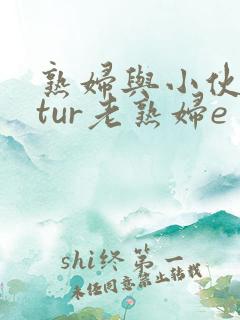 熟婦與小伙
tur老熟婦e
shi终第一
未经同意禁止转载